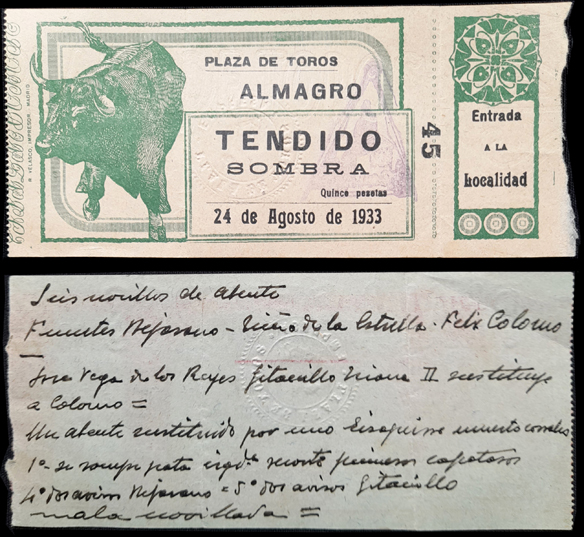 PLAZA DE TOROS
ALMAGRO
TENDIDO
SOMBRA
Quince pesetas
24 de Agosto de 1933
R. VELASCO, IMPRESOR. MADRID
45
Entrada
A LA
Localidad
Seis novillos de Abente
Fuentes Bejarano - Niño de la Estrella - Felix Colomo
Jose Vega de los Reyes Gitanillo Triana II sustituye
a Colomo =
Un Abente sustituido por uno muerto corrales
1º- se rompe pata izqda primeros capotazos
4º dos avisos Bejarano = 5º dos avisos Gitanillo
mala novillada =